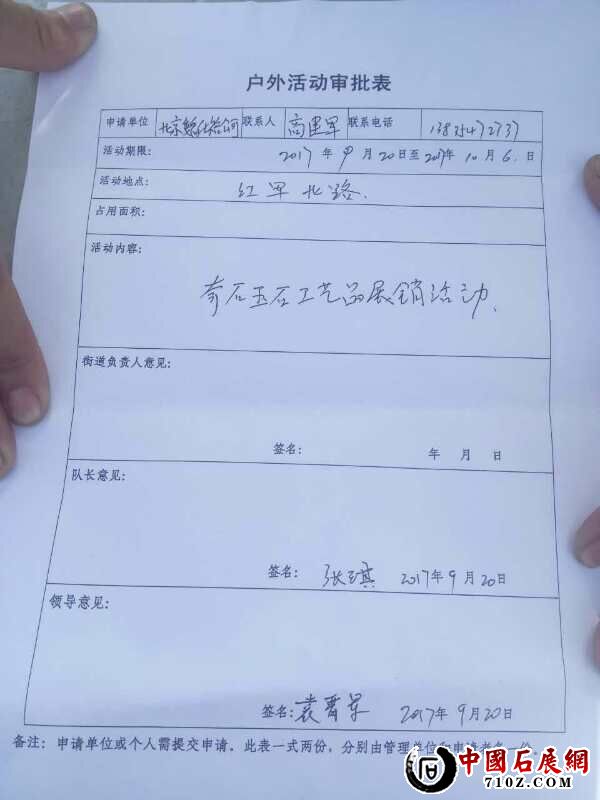 户外活动审批表
申请单位 北京 公司 联系人 高建军 联系电话 13825472737
活动期限: 2017年9月20日至2017年10月6日
活动地点: 红军北路.
占用面积:
活动内容:
奇石玉石工艺品展销活动.
街道负责人意见:
签名: 年 月 日
队长意见:
签名: 张琪 2017年9月20日
领导意见:
签名: 袁晋军 2017年9月20日
备注: 申请单位或个人需提交申请,此表一式两份,分别由管理单位和申请者各一份。
中國石展網
710Z.COM